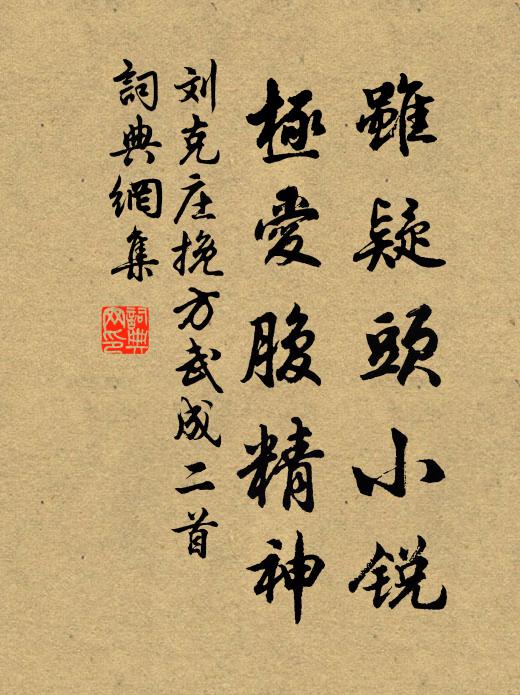 雖疑頭小銳
極愛腹精神
刘克庄挽方武成二首
詞典網集
詞典
网印